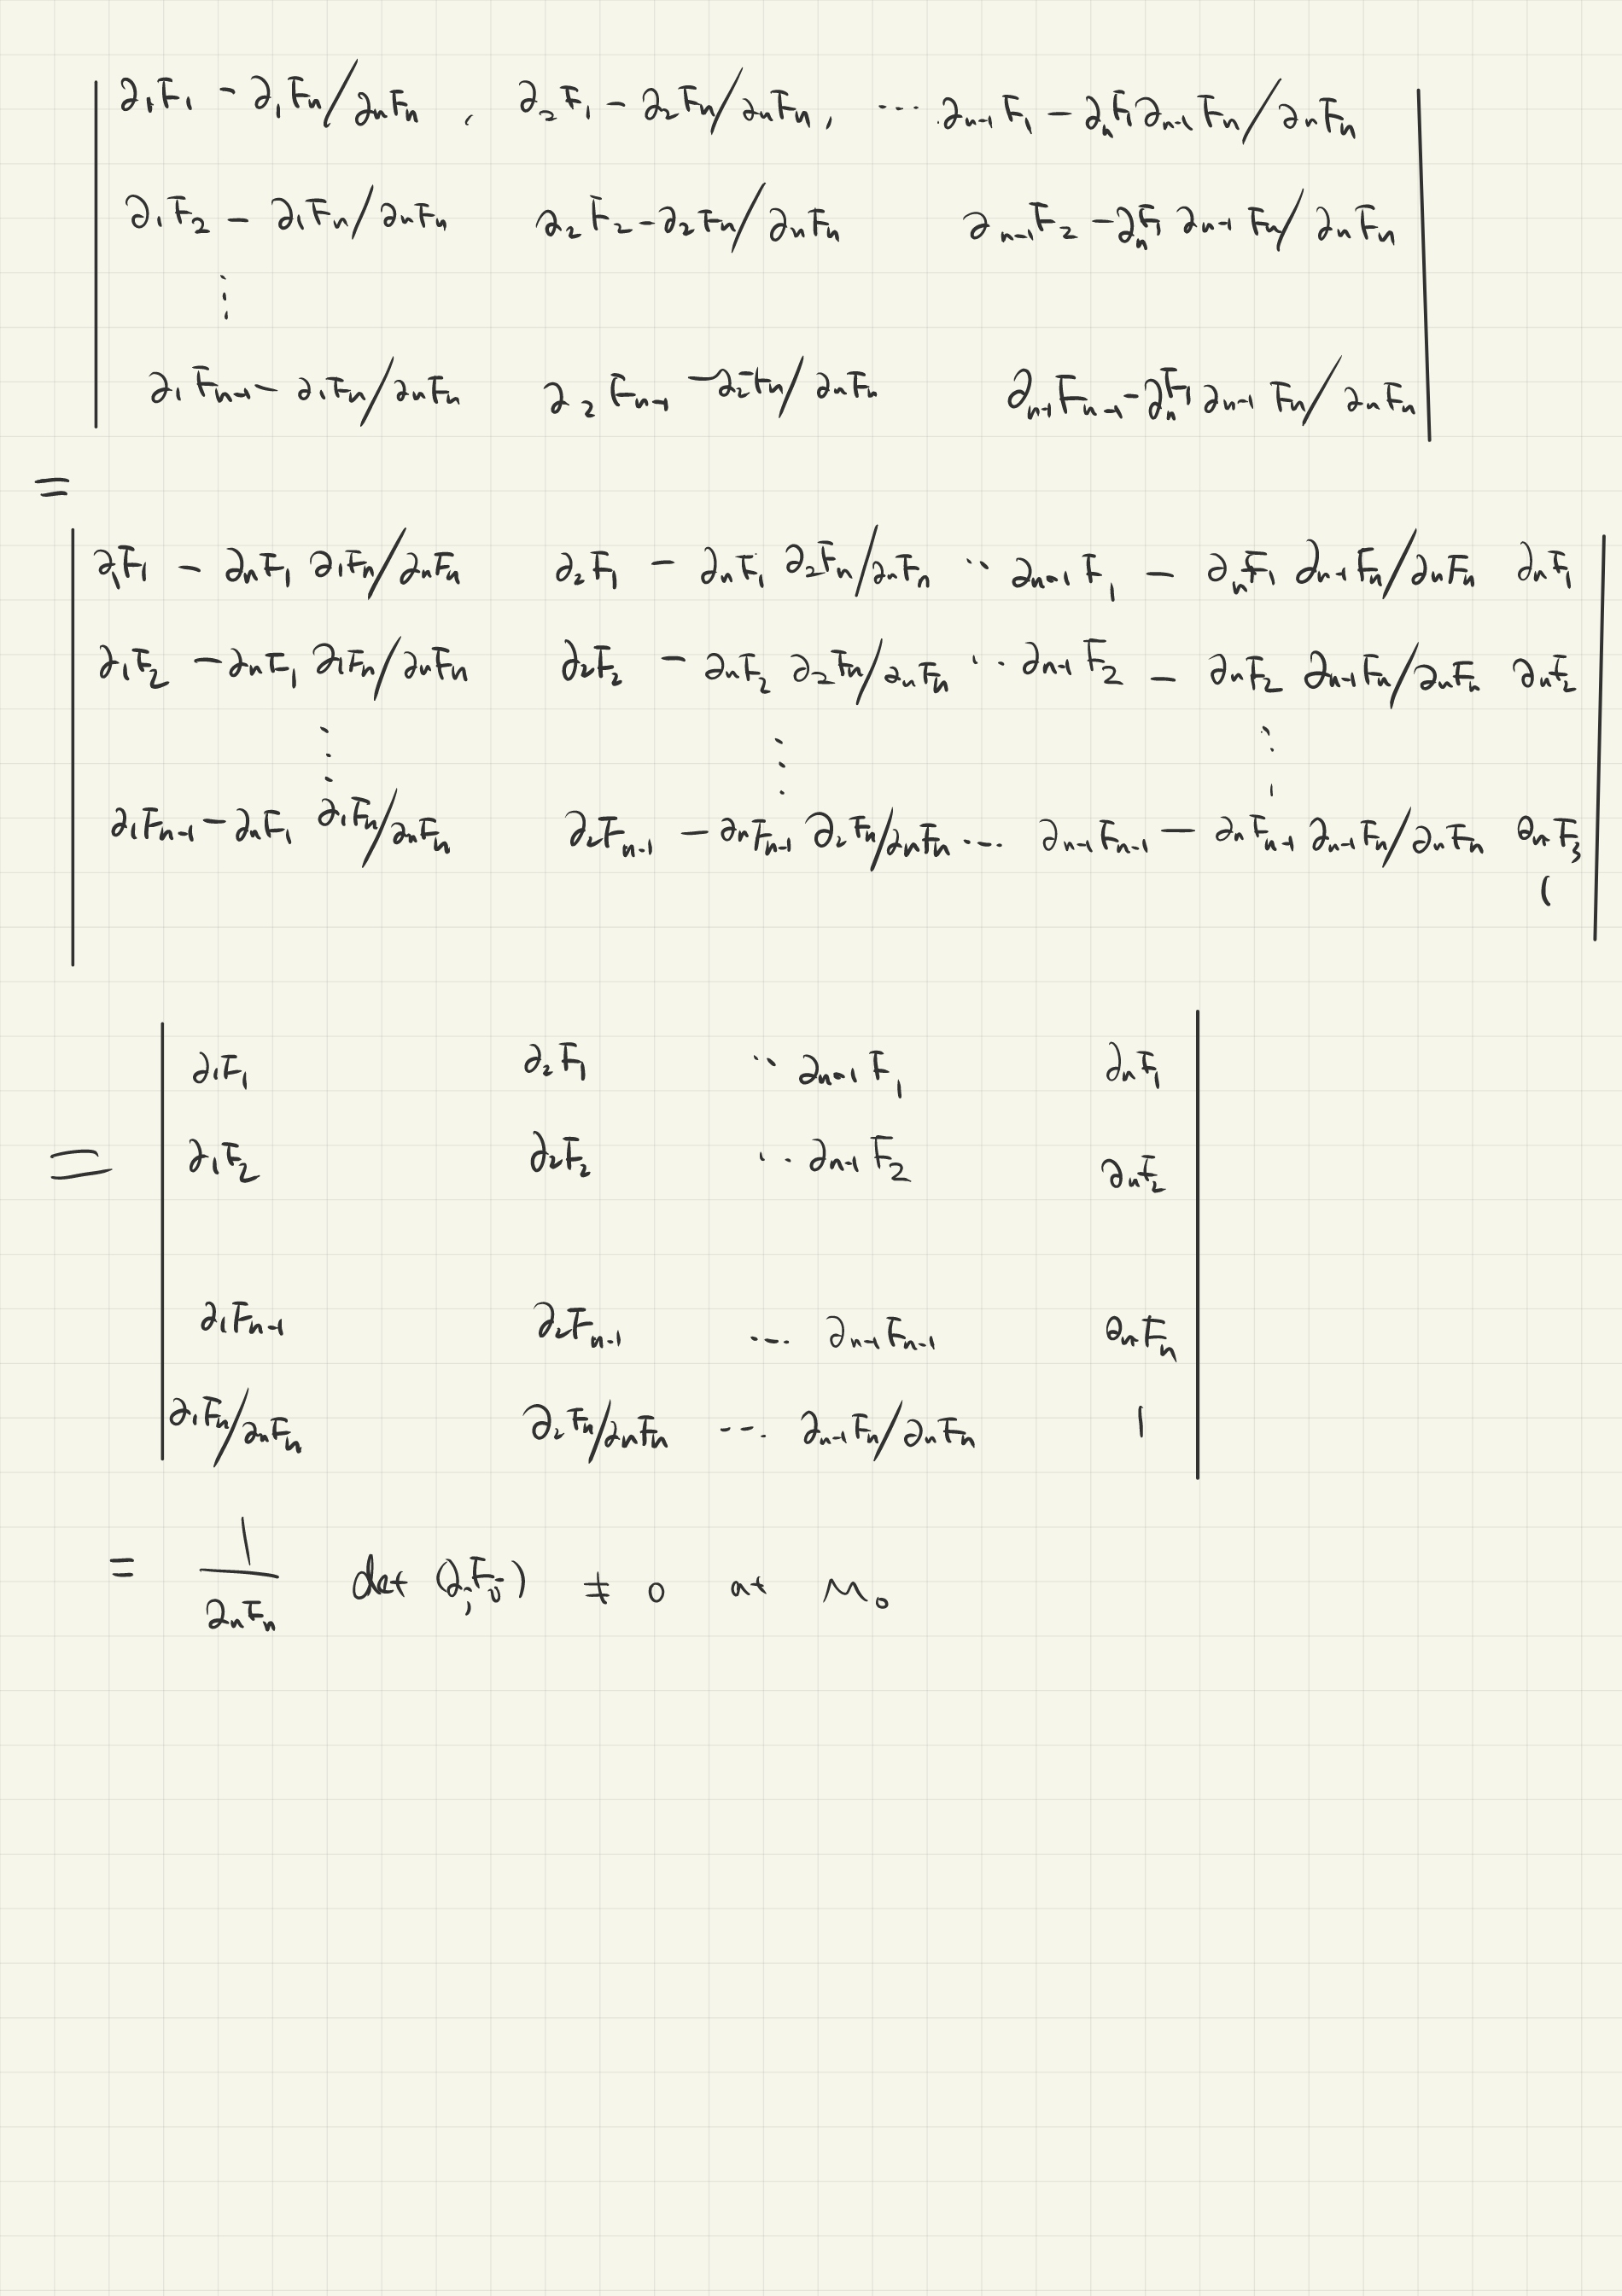 | ∂₁F₁ - ∂₁Fₙ/∂ₙFₙ , ∂₂F₁ - ∂₂Fₙ/∂ₙFₙ , ... ∂ₙ₋₁F₁ - ∂ₙF₁∂ₙ₋₁Fₙ/∂ₙFₙ |
| ∂₁F₂ - ∂₁Fₙ/∂ₙFₙ ∂₂F₂ - ∂₂Fₙ/∂ₙFₙ ∂ₙ₋₁F₂ - ∂ₙF₁ ∂ₙ₋₁Fₙ/∂ₙFₙ |
⋮
| ∂₁Fₙ₋₁ - ∂₁Fₙ/∂ₙFₙ ∂₂Fₙ₋₁ - ∂₂Fₙ/∂ₙFₙ ∂ₙ₋₁Fₙ₋₁ - ∂ₙF₁ ∂ₙ₋₁Fₙ/∂ₙFₙ |
=
| ∂₁F₁ - ∂ₙF₁ ∂₁Fₙ/∂ₙFₙ ∂₂F₁ - ∂ₙF₁ ∂₂Fₙ/∂ₙFₙ ⋱ ∂ₙ₋₁F₁ - ∂ₙF₁ ∂ₙ₋₁Fₙ/∂ₙFₙ ∂ₙF₁ |
| ∂₁F₂ - ∂ₙF₁ ∂₁Fₙ/∂ₙFₙ ∂₂F₂ - ∂ₙF₂ ∂₂Fₙ/∂ₙFₙ ⋱ ∂ₙ₋₁F₂ - ∂ₙF₂ ∂ₙ₋₁Fₙ/∂ₙFₙ ∂ₙF₂ |
⋮ ⋮ ⋮
| ∂₁Fₙ₋₁ - ∂ₙF₁ ∂₁Fₙ/∂ₙFₙ ∂₂Fₙ₋₁ - ∂ₙFₙ₋₁ ∂₂Fₙ/∂ₙFₙ ... ∂ₙ₋₁Fₙ₋₁ - ∂ₙFₙ₋₁ ∂ₙ₋₁Fₙ/∂ₙFₙ ∂ₙF₃ |
1
| ∂₁F₁ ∂₂F₁ ⋱ ∂ₙ₋₁F₁ ∂ₙF₁ |
= | ∂₁F₂ ∂₂F₂ ⋱ ∂ₙ₋₁F₂ ∂ₙF₂ |
| ∂₁Fₙ₋₁ ∂₂Fₙ₋₁ ... ∂ₙ₋₁Fₙ₋₁ ∂ₙFₙ |
| ∂₁Fₙ/∂ₙFₙ ∂₂Fₙ/∂ₙFₙ ... ∂ₙ₋₁Fₙ/∂ₙFₙ 1 |
= 1/∂ₙFₙ det (∂ᵢFⱼ) ≠ 0 at M₀